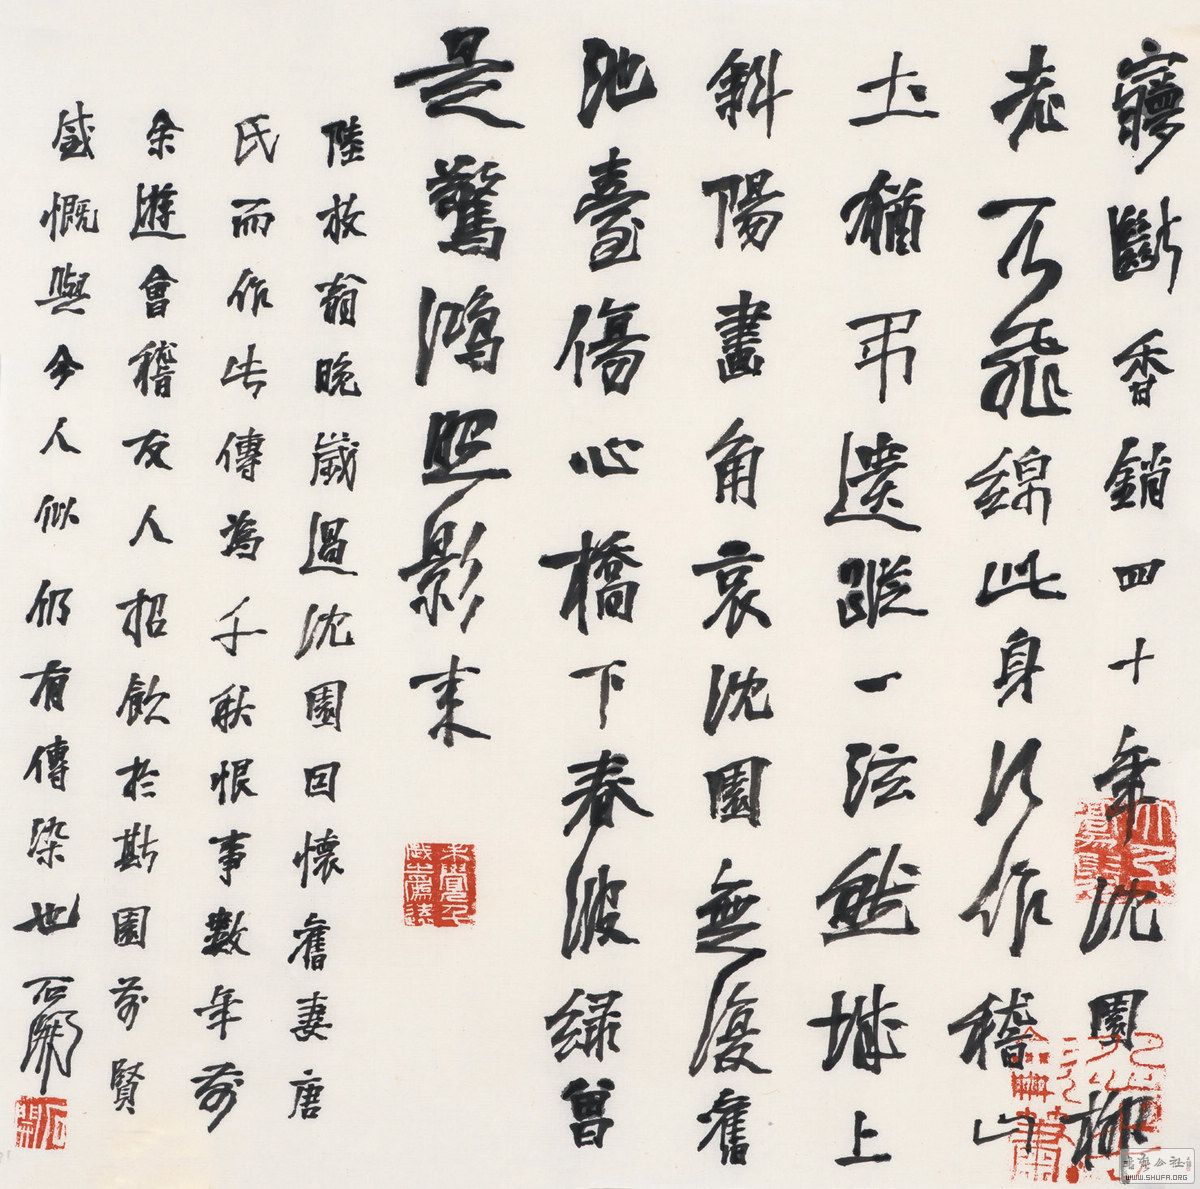 寢斷香銷四十年沈園柳
老不飛綿此身行作稽山
土猶弔遺蹤一泫然城上
斜陽畫角哀沈園無復舊
池臺傷心橋下春波綠曾
是驚鴻照影來
陸放翁晚歲過沈園因懷舊妻唐
氏而作此傳為千秋恨事數年前
余遊會稽友人招飲於斯園前賢
感慨與今人似仍有傳染也石開
石開
WWW.SHUFA.ORG